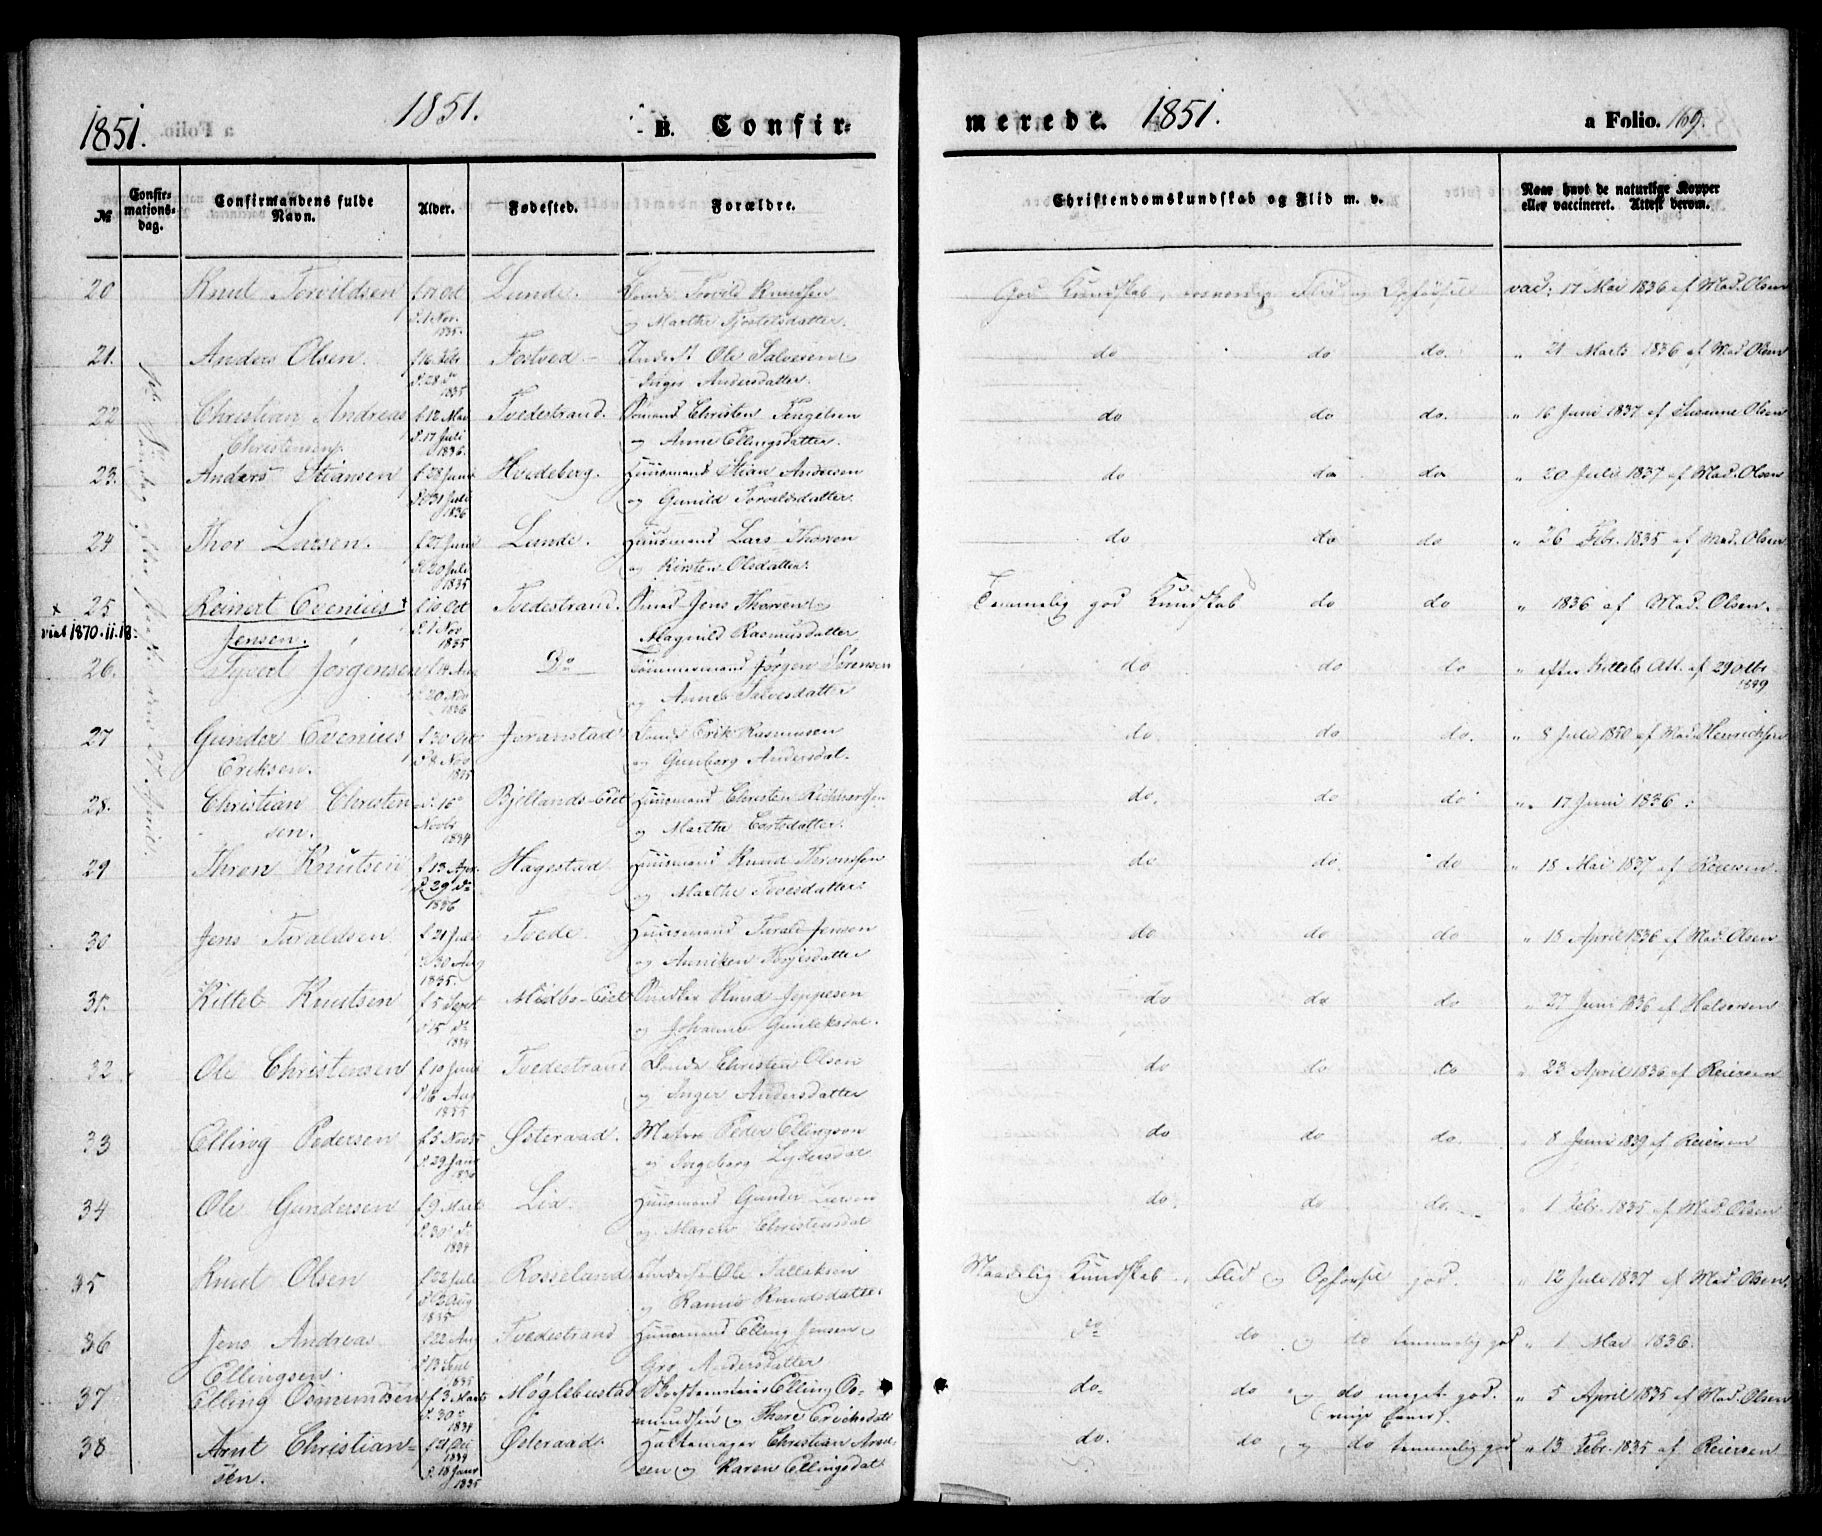 1851. 1851. B. Confir-
merede. 1851. a Folio. 169.
№ Confirmationsdag. Confirmandens fulde Navn. Alder. Fødested. Forældre.
Christendomskundskab og Flid m. v. Naar havt de naturlige Kopper eller vaccineret. Attest derom.
1ste Søndag efter Paaske den 27 April.
20 Knut Torvildsen f. 17 Oct Lunde. Torvild Knudsen God Kundskab, Flid og Opførsel vac: 17 Mai 1836 af Mad. Olsen
d. 1 Nov. 1835. og Marthe Kjostelsdatter.
21. Anders Olsen. f. 16 Febr Fostved Inderst Ole Salvesen do do do. " 21 Marts 1836 af Mad Olsen
d. 28 do 1835 Inger Andersdatter.
22 Christian Andreas f. 12 Mai Tvedestrand. Sømand Christen Tengelsen do do do. " 16 Juni 1837 af Susanne Olsen
Christensen. d. 17 Juli 1836. og Anne Ellingsdatter.
23. Anders Stiansen f. 28 Juni Hvedeberg. Huusmand Stian Andersen do do do " 20 Juli 1837 af Mad. Olsen
d. 31 Juli 1836 og Gunild Torvildsdatter.
24 Thor Larsen. f. 27 Juni Lunde. Huusmand Lars Thorsen do do do " 26 Febr. 1835 af Mad. Olsen
d. 20 Juli 1835 og Kirsten Olsdatter.
25 Reinert Evenius f. 10 Oct Tvedestrand. Smed Jens Thorsen Temmelig god Kundskab do do " 1836 af Mad. Olsen.
x viet 1870.11.18. Jensen. d. 1 Nov 1835 Magnild Rasmusdatter
26. Syvert Jørgensen f. 14 Aug Do Tømmermand Jørgen Sørensen do do do " efter Kittels Att. af 29 Octbr 1849
d. 20 Nov 1836 og Anne Salvesdatter
27 Gunder Evenius f. 30 Oct Joranstad Erik Rasmusen do do do. " 8 Juli 1850 af Mad. Henrichsen
Eriksen. d. 8 Nov 1835 og Gunborg Andersdat.
28. Christian Christensen. d. 16 Novbr 1834 Bjellands-Eiet Huusmand Christen Richardsen do. do do " 17 Juni 1836.
og Marthe datter.
29 Thron Knutsen f. 13 Apr. Hagestad Huusmand Knud Thronsen do do. do " 18 Mai 1837 af Reiersen.
d. 29 do 1836 og Marthe Tovesdatter.
30 Jens Taraldsen f. 21 Juli Tvede. Huusmand Tarald Jensen do do do " 18 April 1836 af Mad. Olsen
d. 30 Aug 1835. og Anniken Terjesdatter
31. Kittel Knudsen f. 5 Sept Midbo-Eiet Knud Jeppesen do do do " 27 Juni 1836 af Halvorsen
d. 15 do 1834 og Johanne Gunleksdat.
32 Ole Christensen f. 10 Juni Tvedestrand Christen Olsen do do do " 23 April 1836 af Reiersen
d. 16 Aug 1835 og Inger Andersdatter
33 Elling Pedersen f. 5 Novbr Østeraad. Peder Ellingsen do do do. " 8 Juni 1839 af Reiersen
d. 29 Janr og Ingeborg Lydersdat
34 Ole Gundersen f. 9 Mart Lia. Huusmand Gunder Larsen do. do do. " 1 Febr. 1835 af Mad. Olsen
d. 30 do 1834 og Maren Christensdat
35 Knud Olsen f. 22 Juli Rosseland Ole Tallaksen Maadelig Kundskab, Flid og Opførsel god. " 12 Juli 1837 af Mad. Olsen.
d. 2 Aug 1835 og Knudsdatter
36 Jens Andreas f. 22 Aug Tvedestrand Huusmand Elling Jensen do do og do temmelig god " 1 Mai 1836.
Ellingsen. d. 13 Sept 1835 Gro Andersdatter
37 Elling Osmundsen f. 3 Marts Møglebustad Elling Os- do do og do meget god. " 5 April 1835 af Mad. Olsen
d. 30 do 1834 mundsen og Thore Erichsdatt
38 Arnt Christian- f. 21 Dec 1834 Østeraad. Hattemager Christian Arnt- do. do og do temmelig god " 13 Febr. 1835 af Reiersen
sen. d. 18 Janr 1835 sen og Karen Ellingsdat